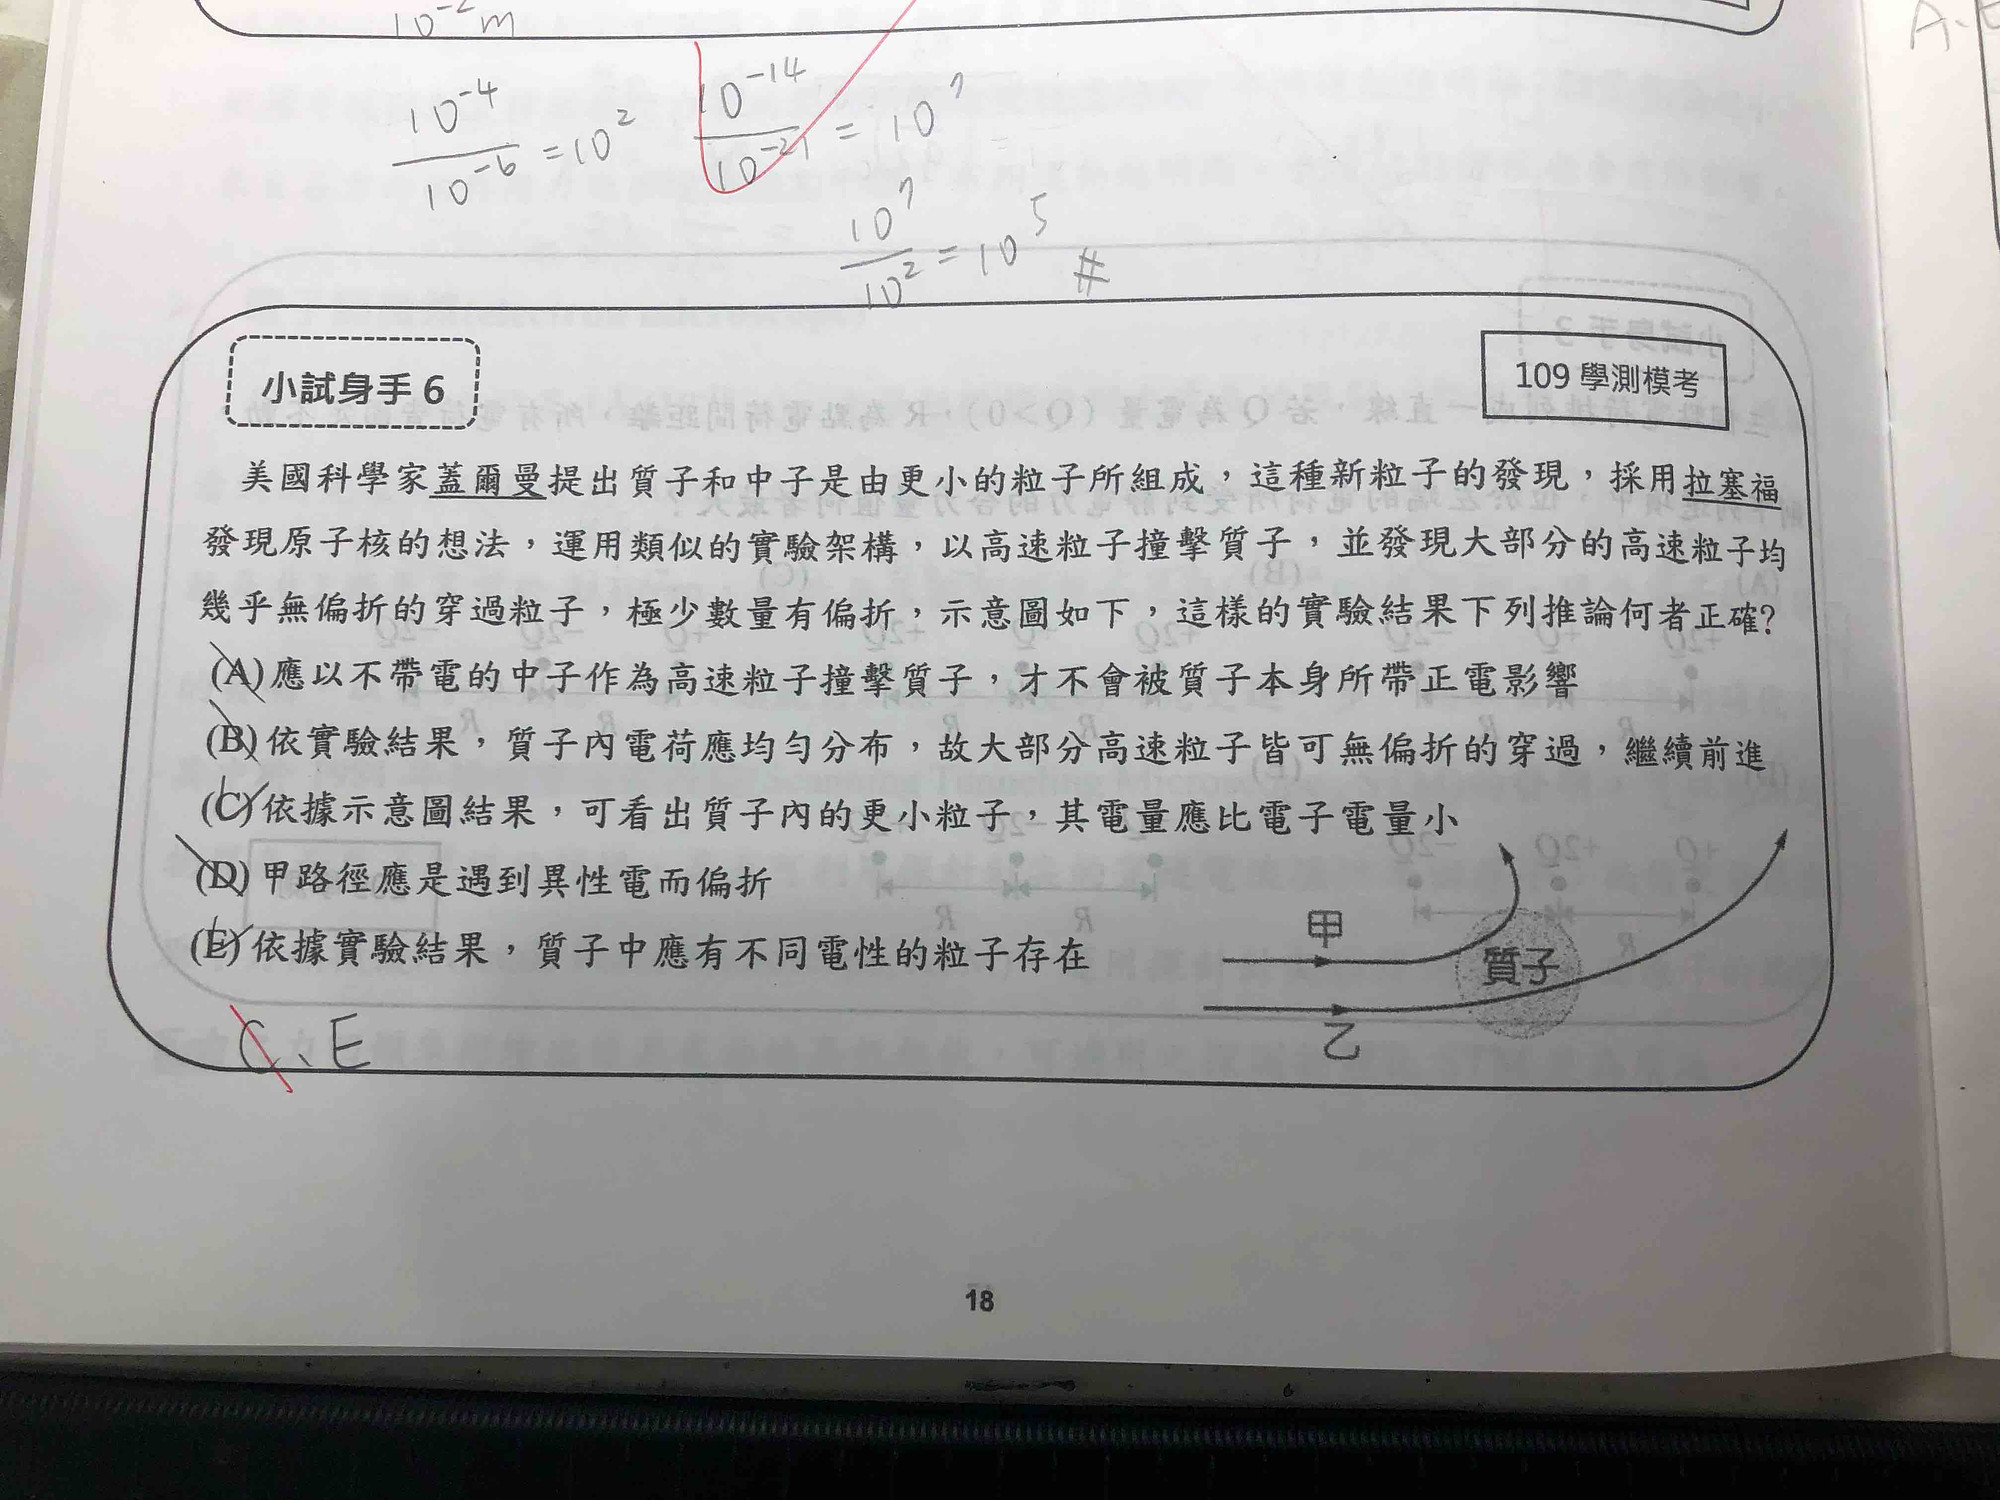 10⁻² m
10⁻⁴ / 10⁻⁶ = 10²
10⁻¹⁴ / 10⁻²¹ = 10⁷
10⁷ / 10² = 10⁵ #
小試身手 6
109 學測模考
美國科學家蓋爾曼提出質子和中子是由更小的粒子所組成，這種新粒子的發現，採用拉塞福
發現原子核的想法，運用類似的實驗架構，以高速粒子撞擊質子，並發現大部分的高速粒子均
幾乎無偏折的穿過粒子，極少數量有偏折，示意圖如下，這樣的實驗結果下列推論何者正確?
(A) 應以不帶電的中子作為高速粒子撞擊質子，才不會被質子本身所帶正電影響
(B) 依實驗結果，質子內電荷應均勻分布，故大部分高速粒子皆可無偏折的穿過，繼續前進
(C) 依據示意圖結果，可看出質子內的更小粒子，其電量應比電子電量小
(D) 甲路徑應是遇到異性電而偏折
(E) 依據實驗結果，質子中應有不同電性的粒子存在
甲
質子
乙
C、E
18